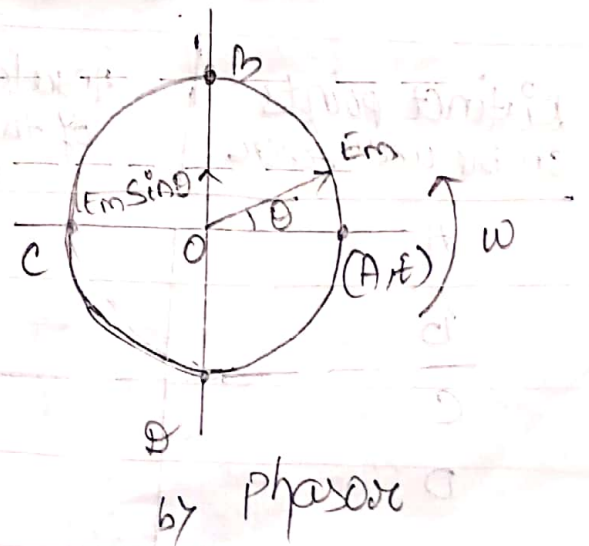 B
Em
Em Sinθ
θ
C
O
(A,E)
ω
D
by phasor